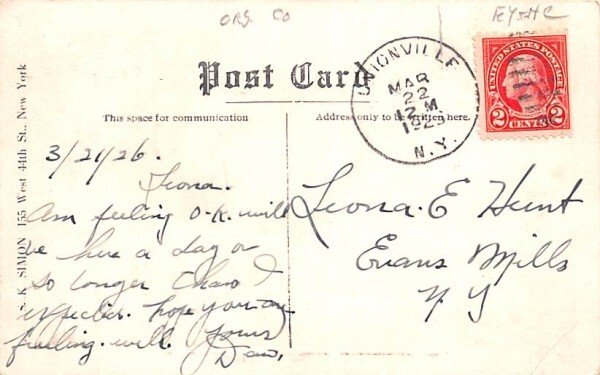 ORG. CO
Post Card
This space for communication
Address only to be written here.
K SIMON 155 West 44th St., New York
UNIONVILLE
MAR
22
12 M
N. Y.
UNITED STATES POSTAGE
2 CENTS 2
3/21/26.
Leona.
Am feeling O.K. will
be here a day or
so longer than I
expected. hope you are
feeling will. Yours
Leona. E Hunt
Evans Mills
N Y